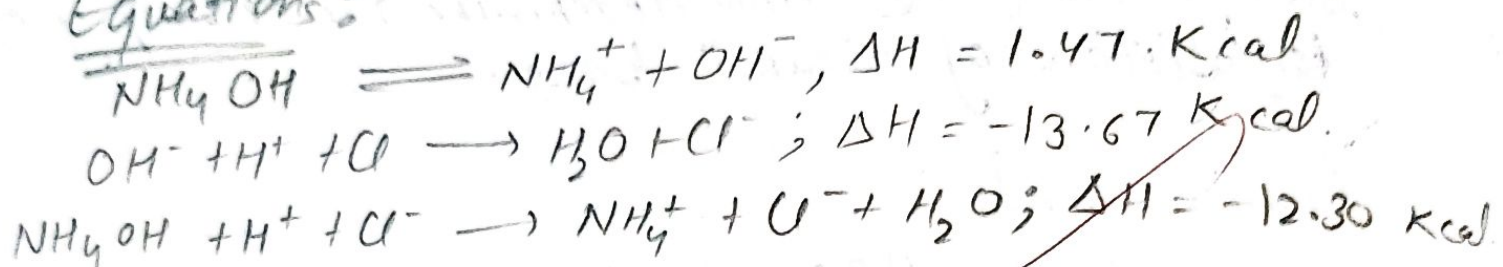 Equations.
NH₄OH ⇌ NH₄⁺ + OH⁻, ΔH = 1.47. Kcal
OH⁻ + H⁺ + Cl ⟶ H₂O + Cl⁻ ; ΔH = -13.67 Kcal.
NH₄OH + H⁺ + Cl⁻ ⟶ NH₄⁺ + Cl⁻ + H₂O ; ΔH = -12.30 Kcal